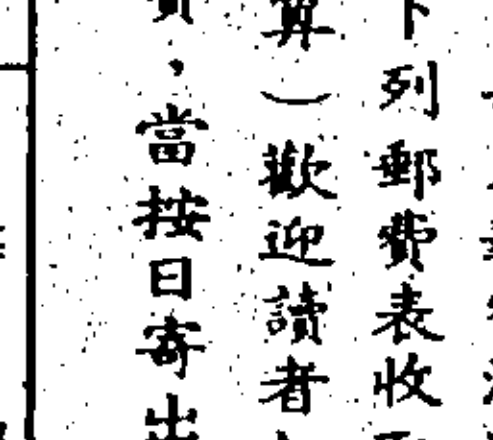 下列郵費表收
算）歡迎讀者
，當按日寄出